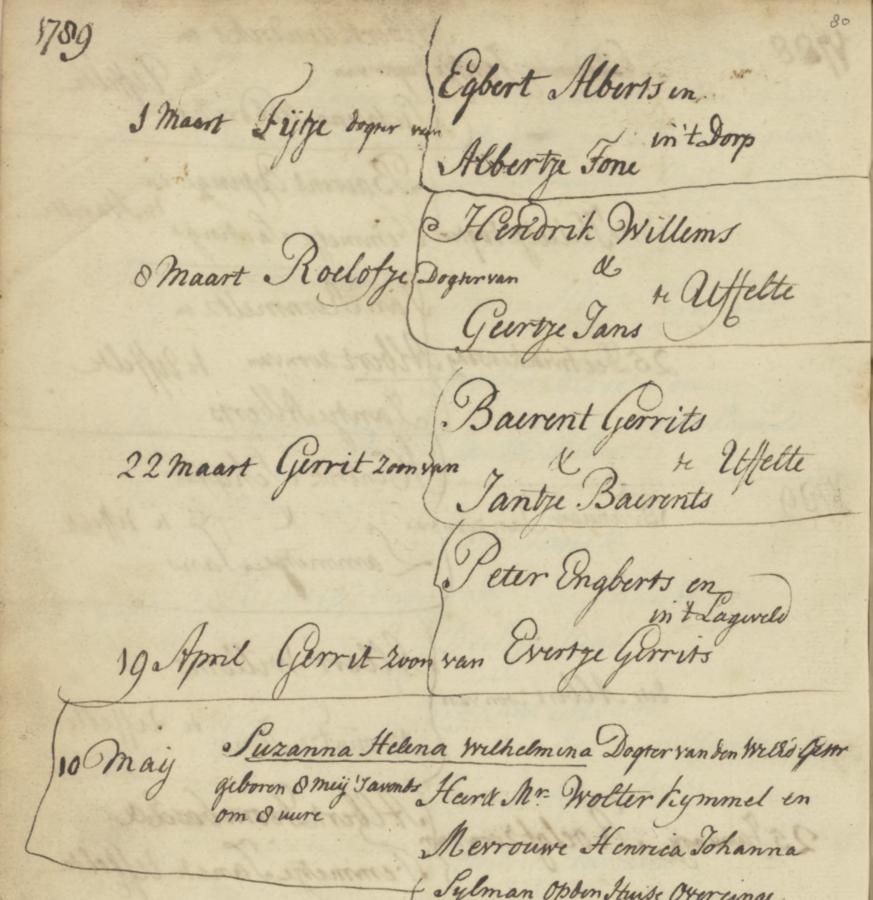 80
1789
Egbert Alberts en
1 Maart Fijtje dogter van in 't Dorp
Albertje Fone
Hendrik Willems
8 Maart Roelofje Dogter van & te Uffelte
Geertje Jans
Baerent Gerrits
22 Maart Gerrit zoon van & te Uffelte
Jantje Baerents
Peter Engberts en
in 't Lageveld
19 April Gerrit zoon van Evertje Gerrits
10 Maij Suzanna Helena Wilhelmina Dogter van den
geboren 8 Meij 's avonts Heer Mr. Wolter Kymmel en
om 8 uure
Mevrouwe Henrica Johanna
Sylman op den Huise Overcinge